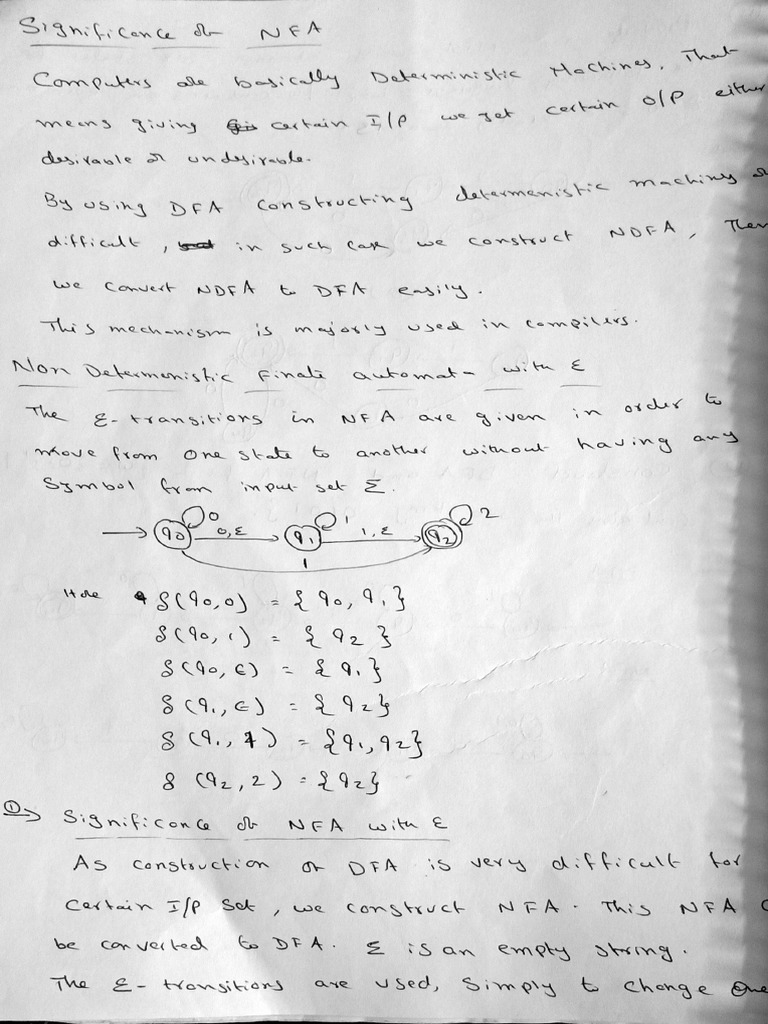 Significance of NFA
Computers are basically Deterministic Machines. That
means giving certain I/P we get certain O/P either
desirable or undesirable.
By using DFA constructing determenistic machins
difficult, in such case we construct NDFA, Then
we convert NDFA to DFA easily.
This mechanism is majorly used in compilers.
Non Determenistic Finate automata with ε
The ε-transitions in NFA are given in order to
move from one state to another without having any
Symbol from input set Σ.
0 1 2
q0 0,ε q1 1,ε q2
1
Here δ(q0,0) = {q0, q1}
δ(q0, 1) = {q2}
δ(q0, ε) = {q1}
δ(q1, ε) = {q2}
δ(q1, 1) = {q1, q2}
δ(q2, 2) = {q2}
① Significance of NFA with ε
As construction of DFA is very difficult for
certain I/P set, we construct NFA. This NFA
be converted to DFA. ε is an empty string.
The ε-transitions are used, Simply to change one